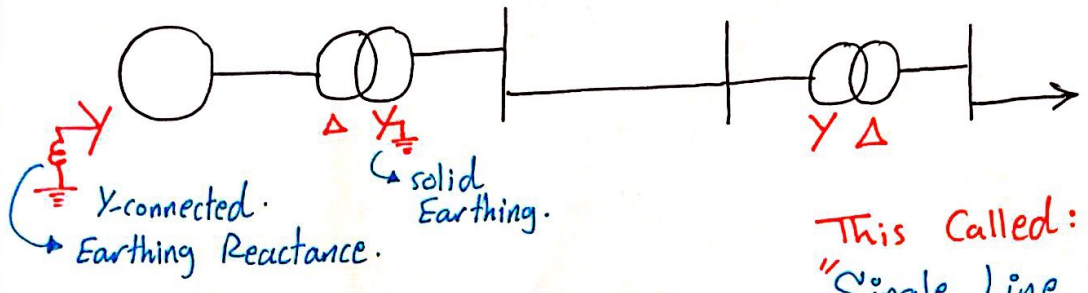 Y
Δ Y
Y Δ
solid
Earthing.
Y-connected.
Earthing Reactance.
This Called:
"Single Line